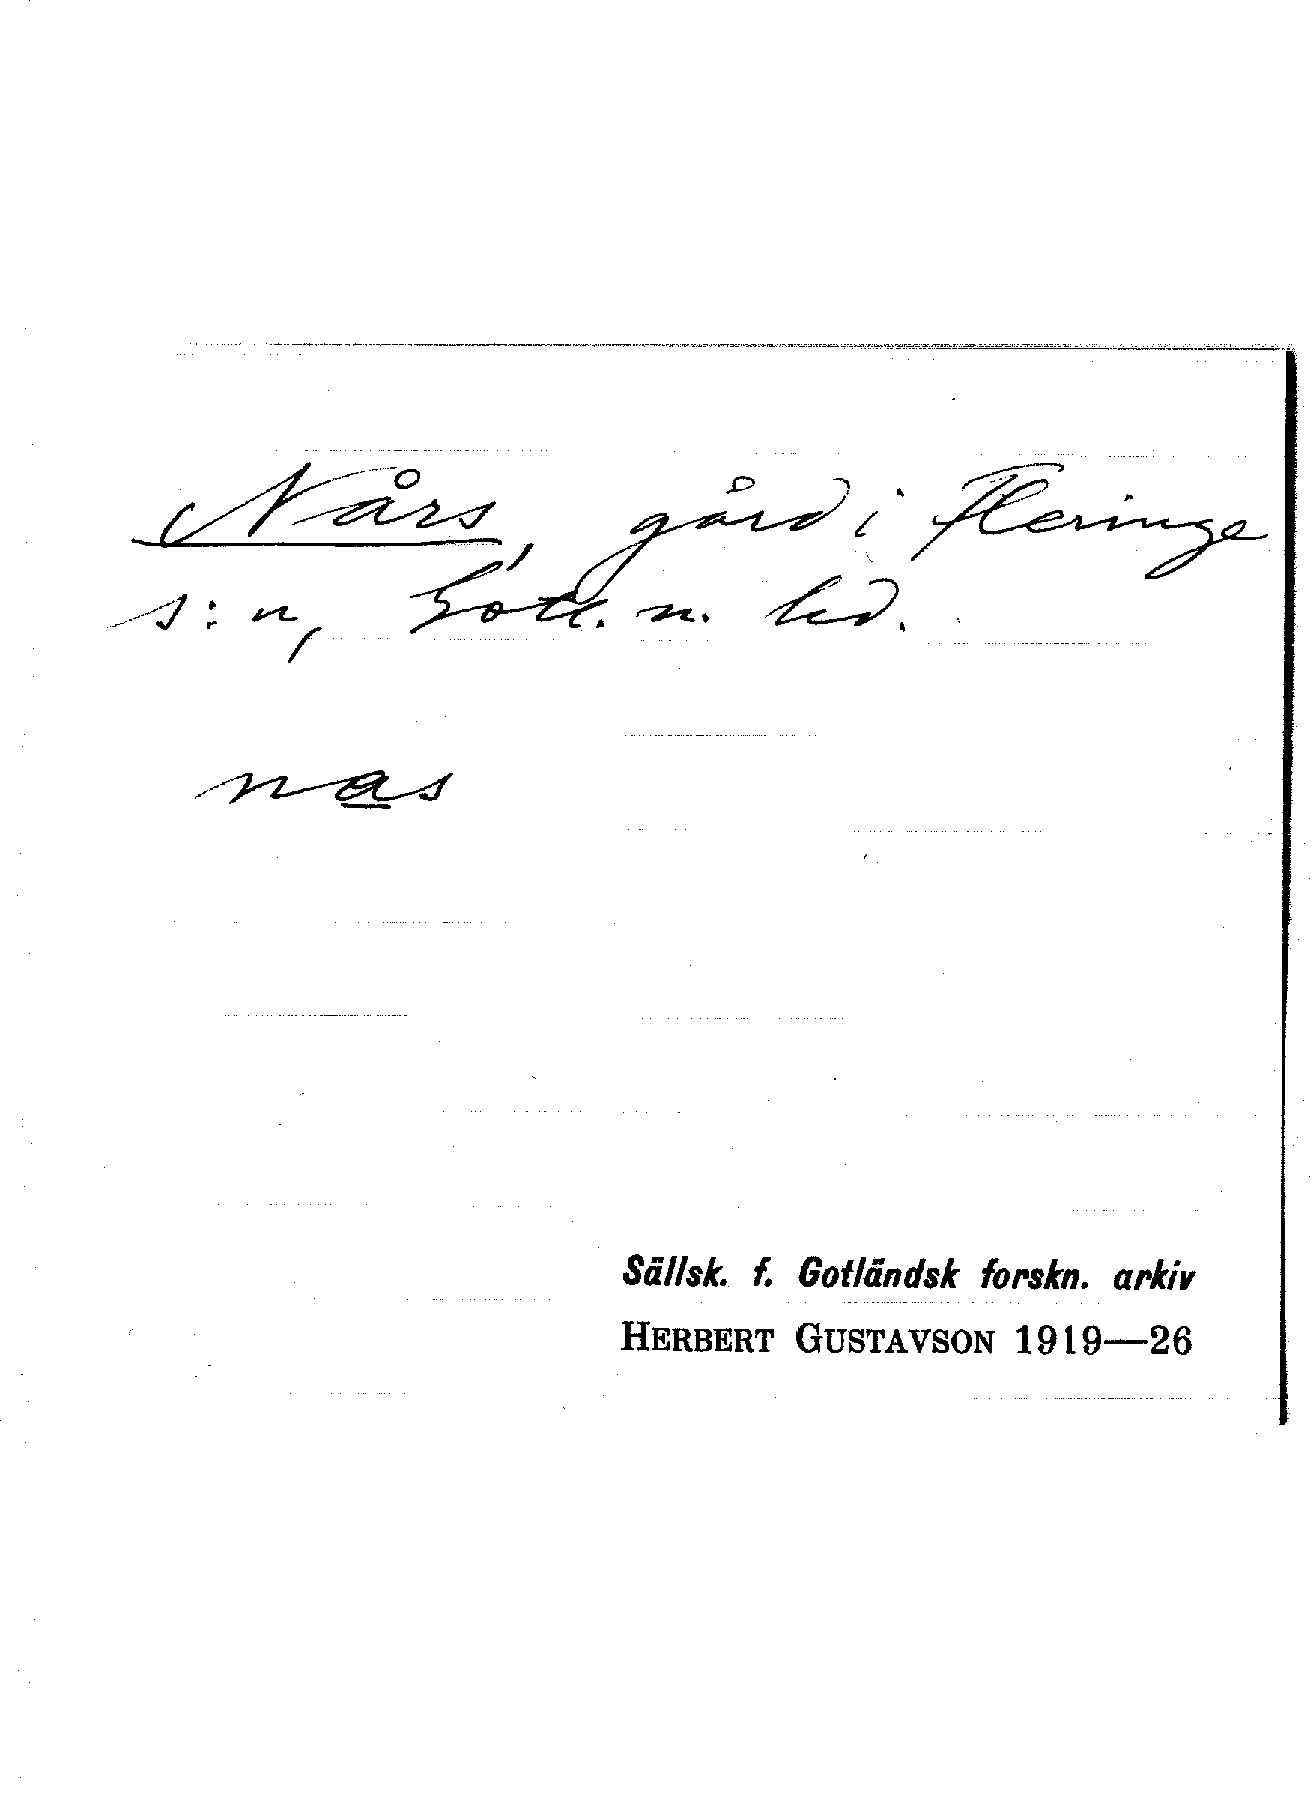 Nårs, gård i Fleringe
s:n, Gotl. n. hd.
nas
Sällsk. f. Gotländsk forskn. arkiv
HERBERT GUSTAVSON 1919—26